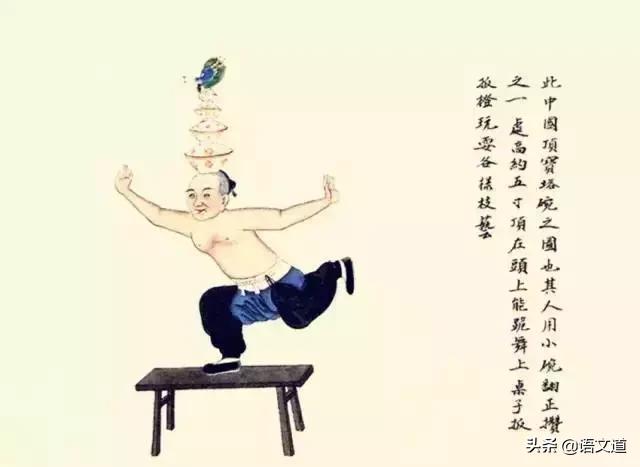 此中國頂寶塔碗之圖也其人用小碗翻正攢
之一處高約五寸頂在頭上能跪舞上桌子板
板橙玩耍各樣技藝
头条@语文道